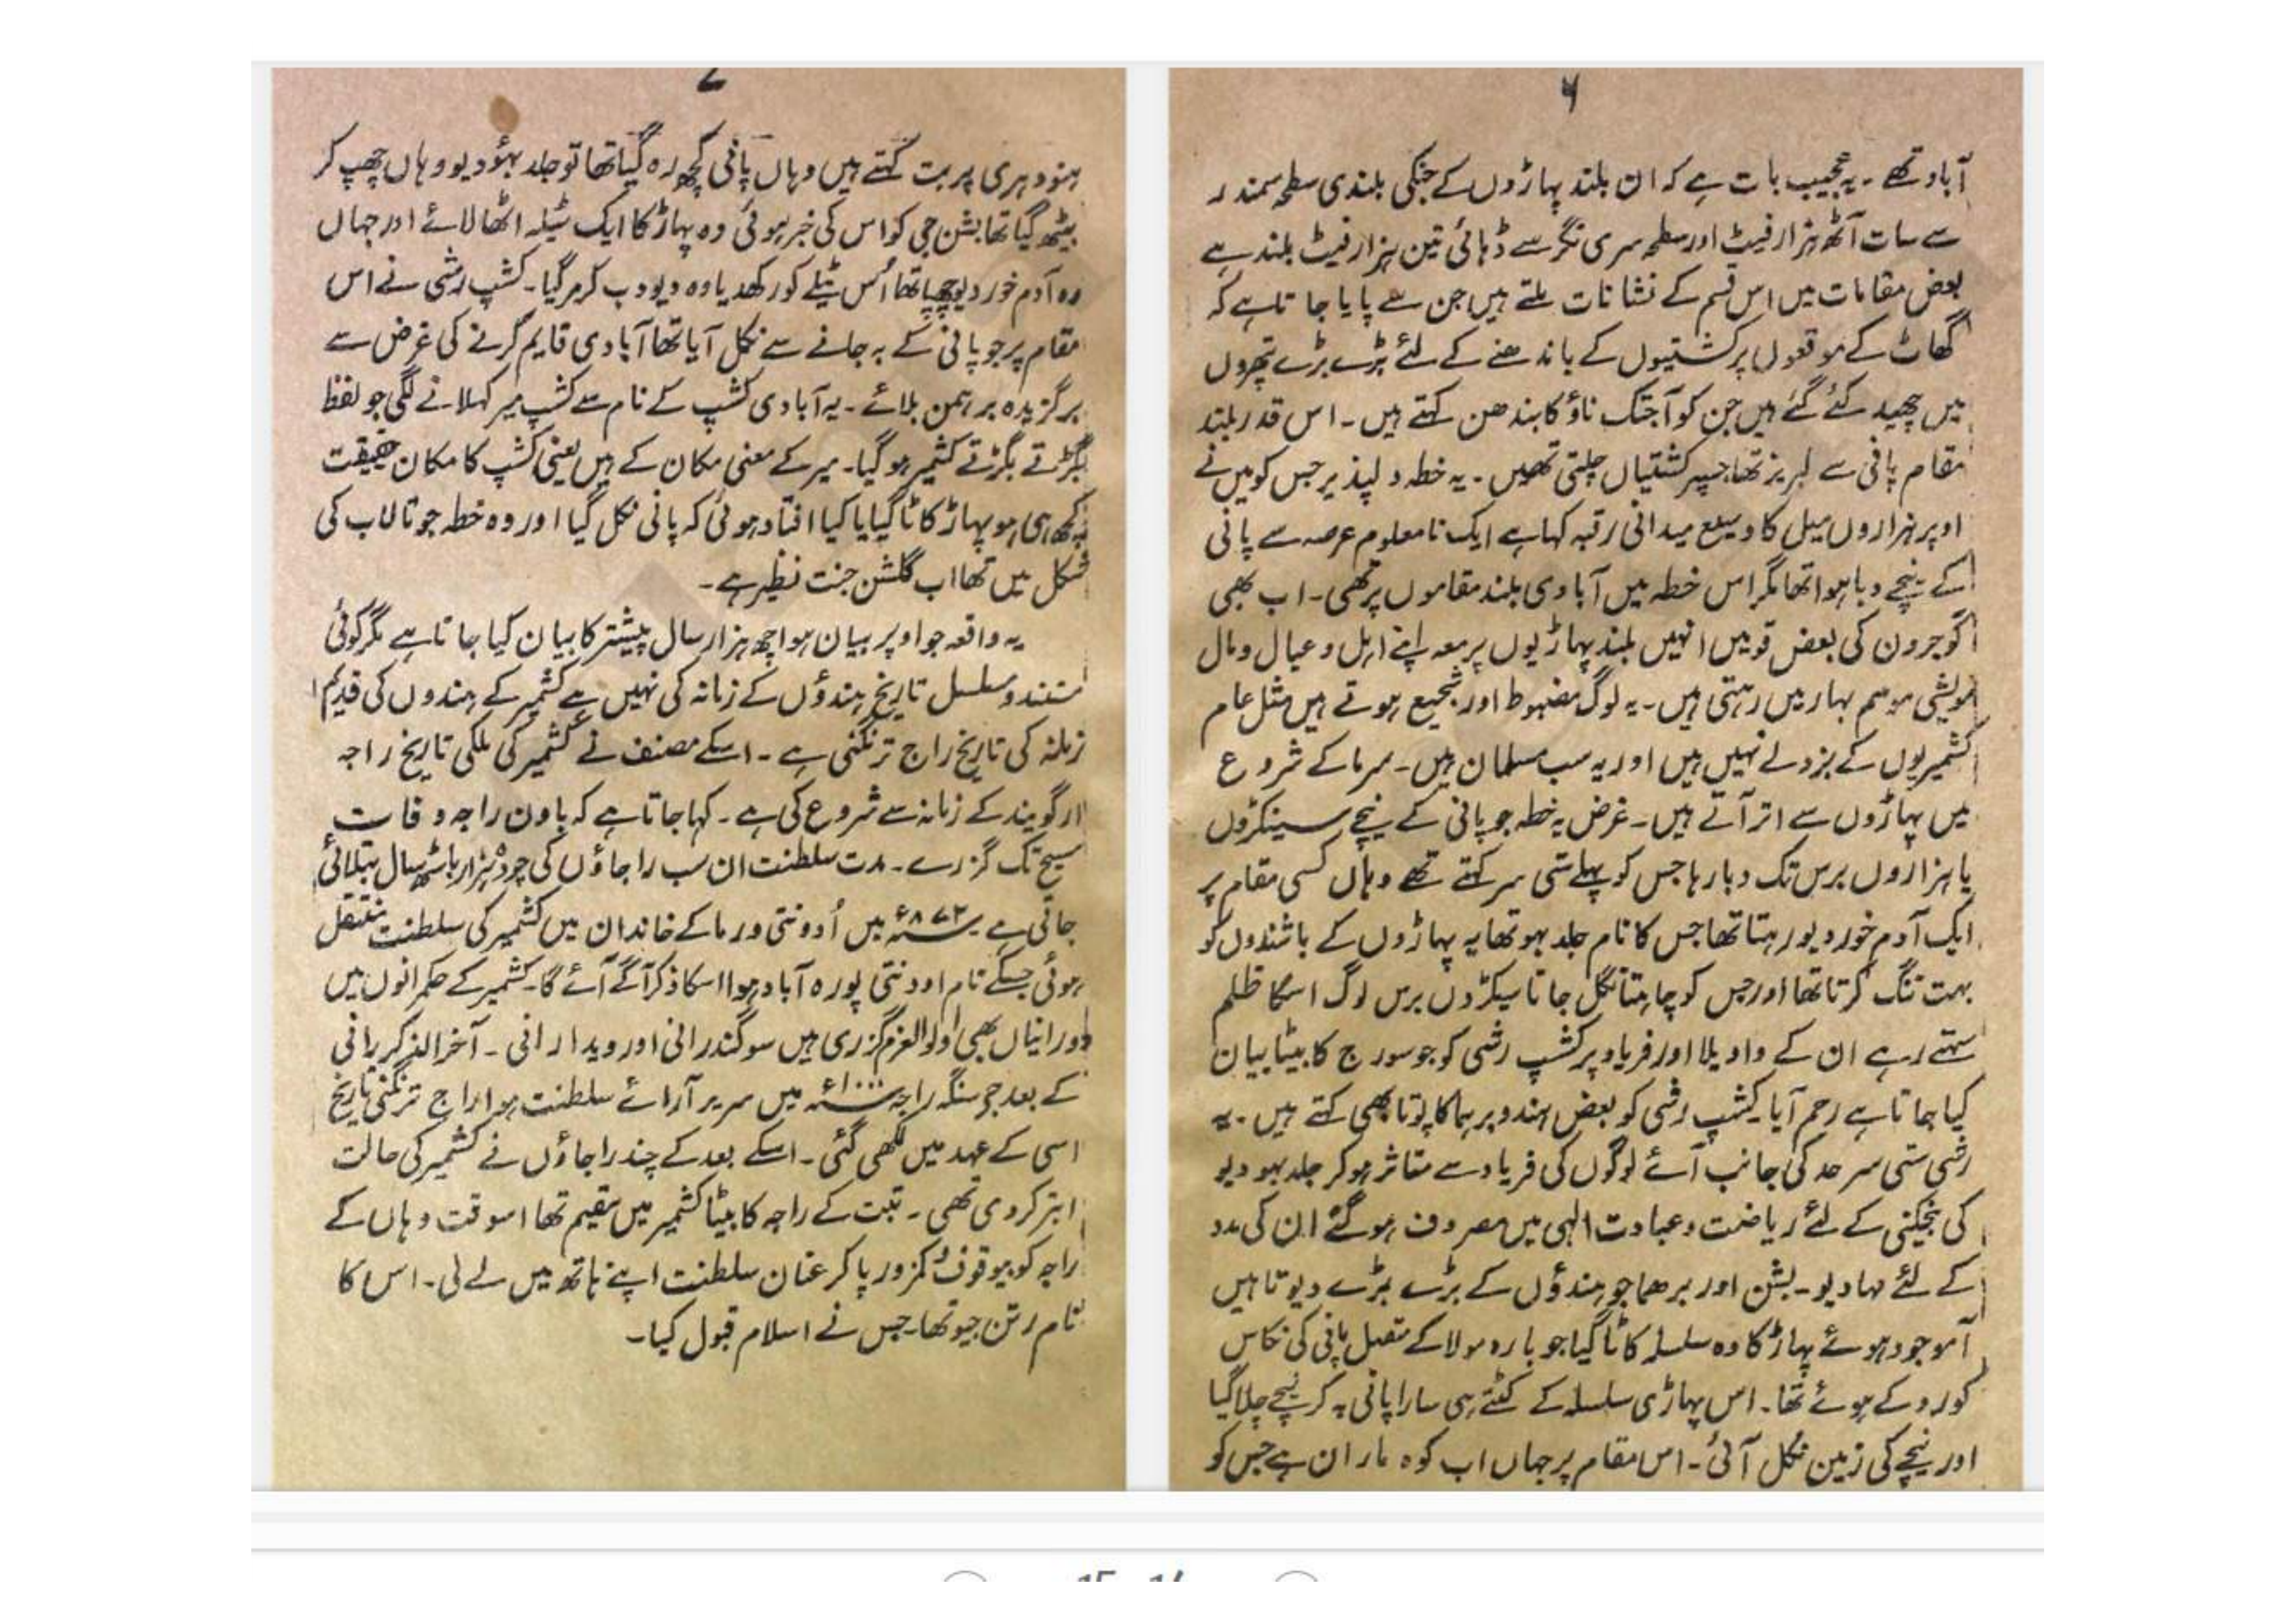 ۶
آباد تھے۔ یہ عجیب بات ہے کہ ان بلند پہاڑوں کے جنکی بلندی سطح سمندر
سے سات آٹھ ہزار فیٹ اور سطح سری نگر سے ڈہائی تین ہزار فیٹ بلند ہے
بعض مقامات میں اس قسم کے نشانات ملتے ہیں جن سے پایا جاتا ہے کہ
گھاٹ کے موقعوں پر کشتیوں کے باندھنے کے لئے بڑے بڑے پتھروں
میں چھید کئے گئے ہیں جن کو آجتک ناؤ کا بندھن کہتے ہیں۔ اس قدر بلند
مقام پانی سے لبریز تھا جسپر کشتیاں چلتی تھیں۔ یہ خطہ دلپذیر جس کو میں نے
اوپر ہزاروں میل کا وسیع میدانی رقبہ کہا ہے ایک نامعلوم عرصہ سے پانی
کے نیچے دبا ہوا تھا مگر اس خطہ میں آبادی بلند مقاموں پر تھی۔ اب بھی
گوجرون کی بعض قومیں انہیں بلند پہاڑیوں پر معہ اپنے اہل و عیال و مال
مویشی موسم بہار میں رہتی ہیں۔ یہ لوگ مضبوط اور شجیع ہوتے ہیں مثل عام
کشمیریوں کے بزدلے نہیں ہیں اور یہ سب مسلمان ہیں۔ سرما کے شروع
میں پہاڑوں سے اتر آتے ہیں۔ غرض یہ خطہ جو پانی کے نیچے سینکڑوں
یا ہزاروں برس تک دبا رہا جس کو پہلے ستی سر کہتے تھے وہاں کسی مقام پر
ایک آدم خور دیو رہتا تھا جس کا نام جلد بہو تھا یہ پہاڑوں کے باشندوں کو
بہت تنگ کرتا تھا اور جس کو چاہتا نگل جاتا سیکڑوں برس لوگ اسکا ظلم
سہتے رہے ان کے واویلا اور فریاد پر کشپ رشی کو جو سورج کا بیٹا بیان
کیا جاتا ہے رحم آیا کشپ رشی کو بعض ہندو برہما کا پوتا بھی کہتے ہیں۔ یہ
رشی ستی سر حد کی جانب آئے لوگوں کی فریاد سے متاثر ہوکر جلد بہو دیو
کی بیخکنی کے لئے ریاضت و عبادت الہی میں مصروف ہو گئے ان کی مدد
کے لئے مہادیو۔ بشن اور برھما جو ہندؤں کے بڑے بڑے دیوتا ہیں
آموجود ہوئے پہاڑ کا وہ سلسلہ کاٹا گیا جو بارہ مولا کے متصل پانی کی نکاس
کو روکے ہوئے تھا۔ اس پہاڑی سلسلہ کے کٹتے ہی سارا پانی بہ کر نیچے چلا گیا
اور نیچے کی زمین نکل آئی۔ اس مقام پر جہاں اب کوہ ماران ہے جس کو
۷
ہنود ہری پربت کہتے ہیں وہاں پانی کچھ رہ گیا تھا تو جلد بہؤ دیو وہاں چھپ کر
بیٹھ گیا تھا بشن جی کو اس کی خبر ہوئی وہ پہاڑ کا ایک ٹیلہ اٹھا لائے اور جہاں
وہ آدم خور دیو چھپا تھا اُس ٹیلے کو رکھدیا وہ دیو دب کر مر گیا۔ کشپ رشی نے اس
مقام پر جو پانی کے بہ جانے سے نکل آیا تھا آبادی قایم کرنے کی غرض سے
برگزیدہ برہمن بلائے۔ یہ آبادی کشپ کے نام سے کشپ میر کہلانے لگی جو لفظ
بگڑتے بگڑتے کشمیر ہو گیا۔ میر کے معنی مکان کے ہیں یعنی کشپ کا مکان حقیقت
کچھ ہی ہو پہاڑ کاٹا گیا یا کیا افتاد ہوئی کہ پانی نکل گیا اور وہ خطہ جو تالاب کی
شکل میں تھا اب گلشن جنت نظیر ہے۔
یہ واقعہ جو اوپر بیان ہوا چھ ہزار سال پیشتر کا بیان کیا جاتا ہے مگر کوئی
مستند و مسلسل تاریخ ہندؤں کے زمانہ کی نہیں ہے کشمیر کے ہندوں کی قدیم
زمانہ کی تاریخ راج ترنگنی ہے۔ اسکے مصنف نے کشمیر کی ملکی تاریخ راجہ
ارگویند کے زمانہ سے شروع کی ہے۔ کہا جاتا ہے کہ باون راجہ وفات
مسیح تک گزرے۔ مدت سلطنت ان سب راجاؤں کی ہزار باسٹھ سال بتلائی
جاتی ہے ۸۷۲ء میں اُدونتی ورما کے خاندان میں کشمیر کی سلطنت منتقل
ہوئی جسکے نام اودنتی پورہ آباد ہوا اسکا ذکر آگے آئے گا۔ کشمیر کے حکمرانوں میں
دو رانیاں بھی اولوالعزم گزری ہیں سوگندرانی اور ویدا رانی۔ آخرالذکر رانی
کے بعد جو سنگہ راجہ ۱۰۰۰ء میں سریر آرائے سلطنت ہوا راج ترنگنی تاریخ
اسی کے عہد میں لکھی گئی۔ اسکے بعد کے چند راجاؤں نے کشمیر کی حالت
ابتر کر دی تھی۔ تبت کے راجہ کا بیٹا کشمیر میں مقیم تھا اسوقت وہاں کے
راجہ کو بیوقوف و کمزور پا کر عنان سلطنت اپنے ہاتھ میں لے لی۔ اس کا
نام رتن جیو تھا۔ جس نے اسلام قبول کیا۔